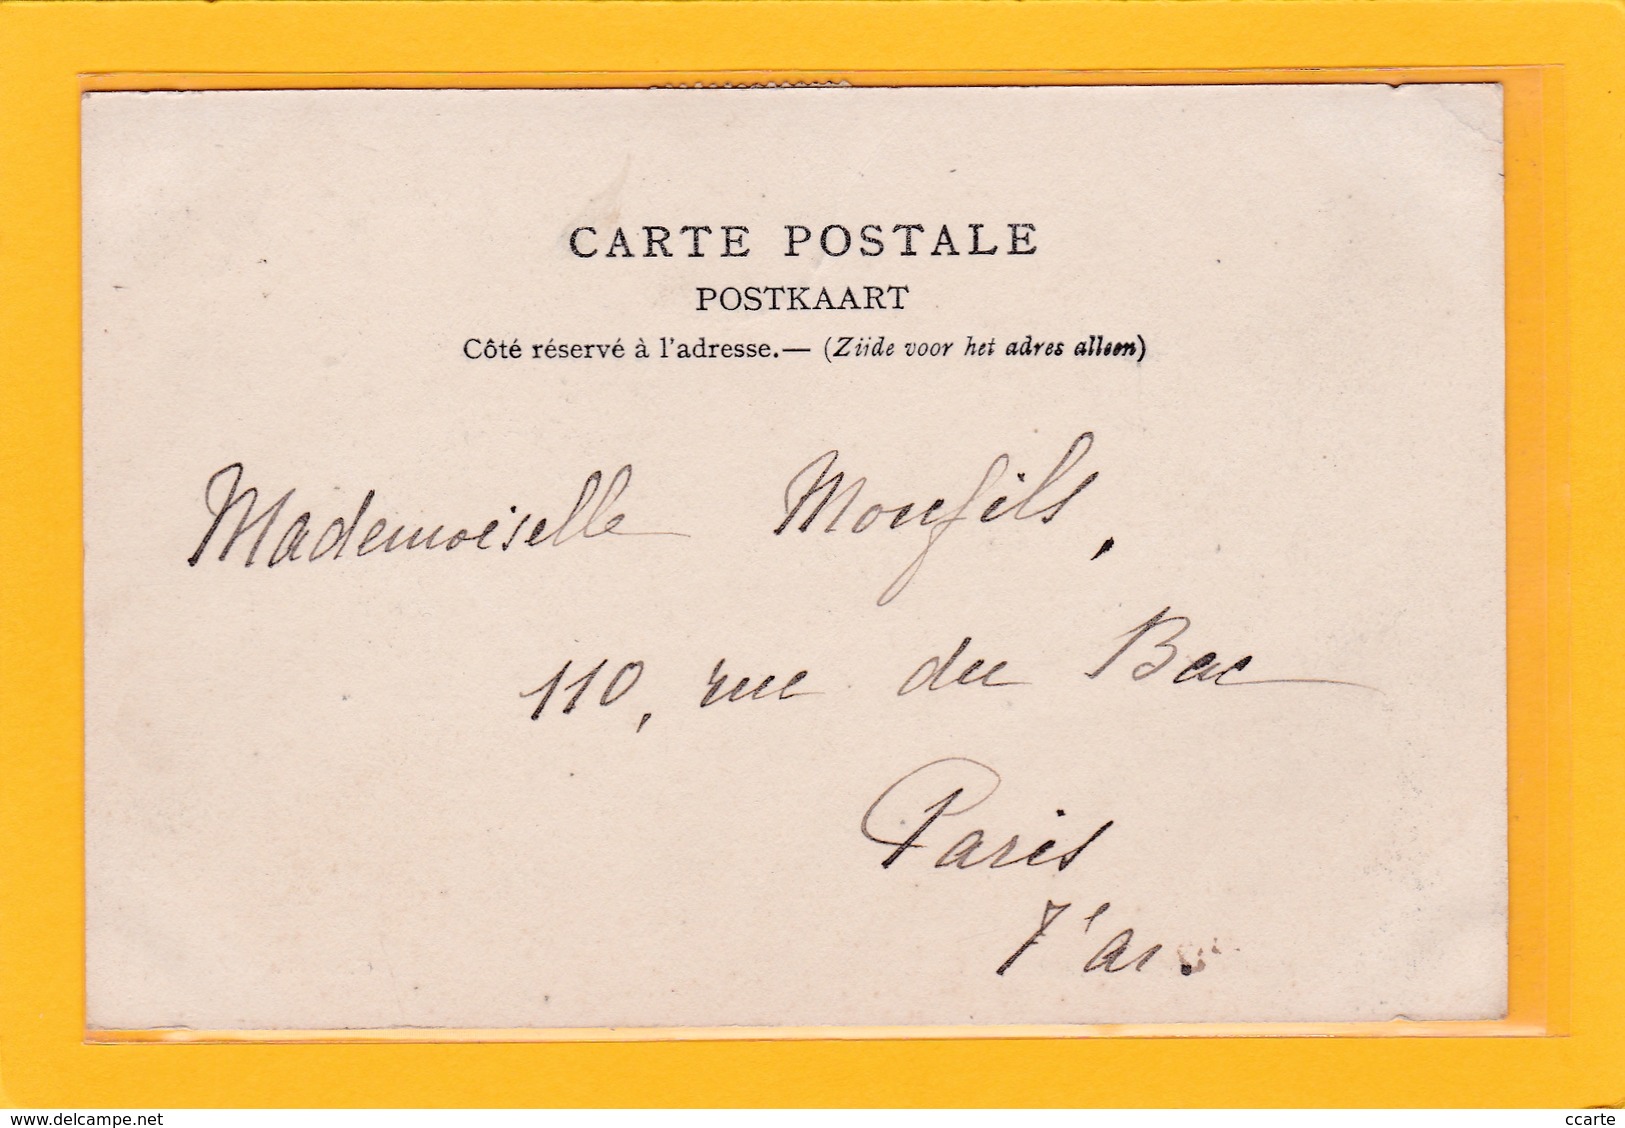 CARTE POSTALE
POSTKAART
Côté réservé à l'adresse.— (Zijde voor het adres alleen)
Mademoiselle Monfils,
110, rue du Bac
Paris
7e ar.
Delcampe.net
ccarte